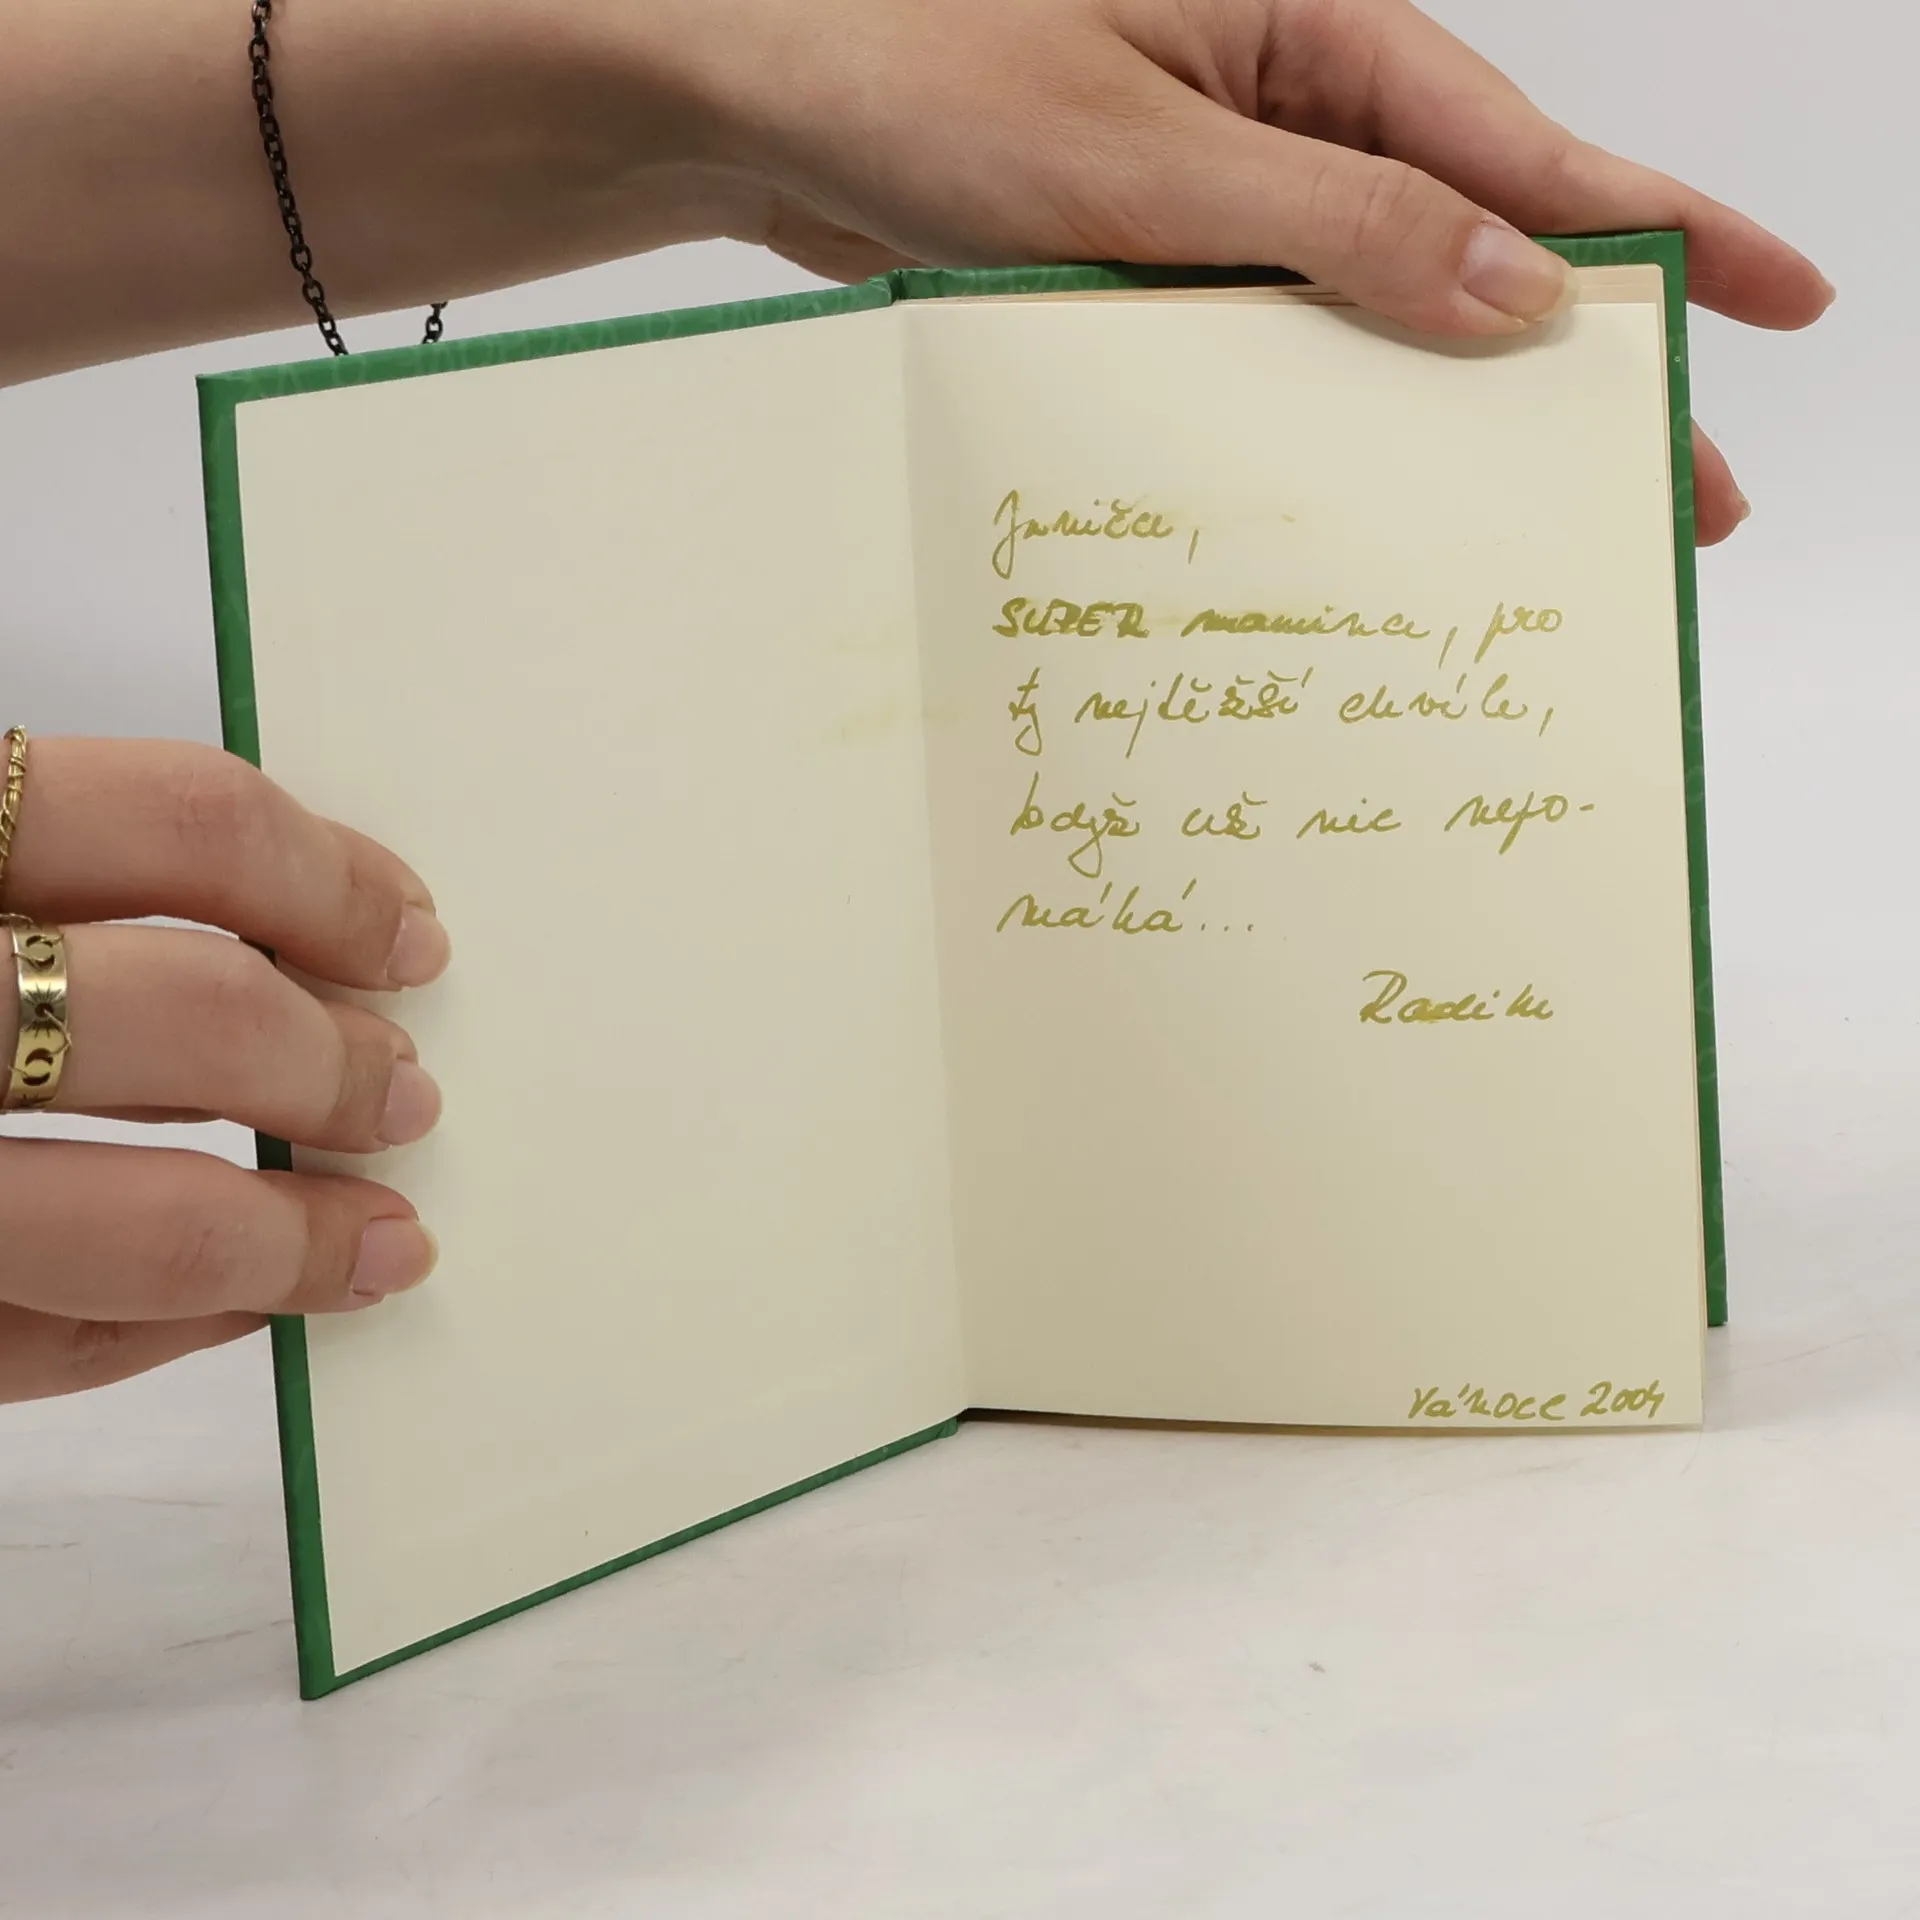 Janiča,
SUPER maminka, pro
ty nejtěžší chvíle,
když už nic nepo-
máhá...
Radim
Vánoce 2004